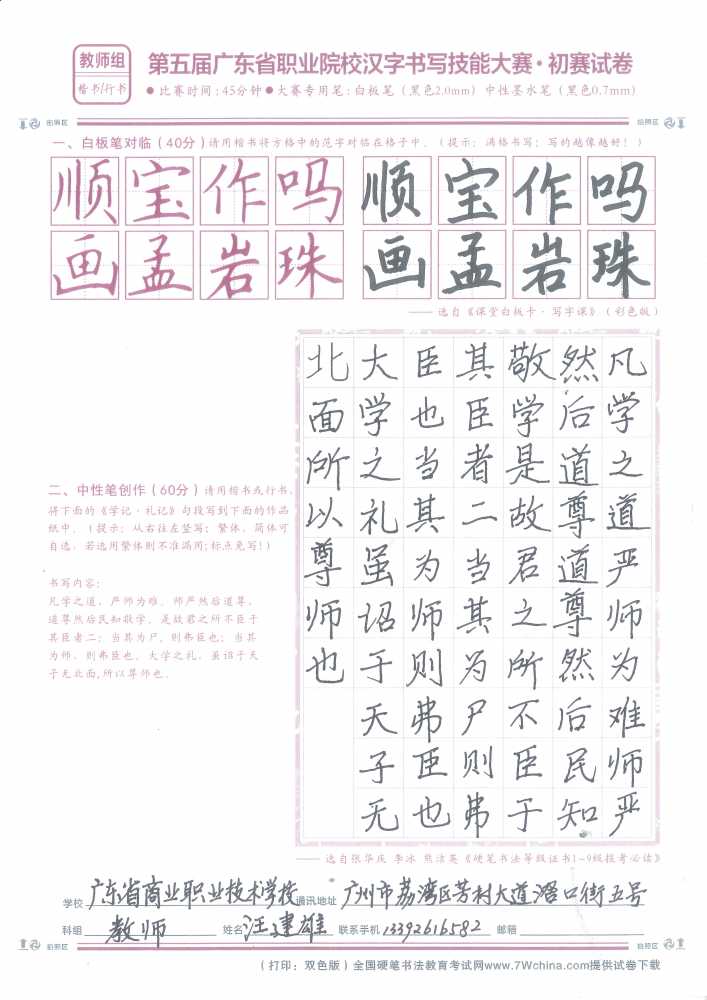 教师组
楷书/行书
第五届广东省职业院校汉字书写技能大赛·初赛试卷
●比赛时间:45分钟●大赛专用笔:白板笔(黑色2.0mm) 中性墨水笔(黑色0.7mm)
拍照区 拍照区
一、白板笔对临(40分)请用楷书将方格中的范字对临在格子中。(提示:满格书写;写的越像越好!)
顺宝作吗
画孟岩珠
顺宝作吗
画孟岩珠
——选自《课堂白板卡·写字课》(彩色版)
二、中性笔创作(60分)请用楷书或行书,
将下面的《学记·礼记》句段写到下面的作品
纸中。(提示:从右往左竖写;繁体、简体可
自选,若选用繁体则不准漏用;标点免写!)
书写内容:
凡学之道,严师为难。师严然后道尊,
道尊然后民知敬学。是故君之所不臣于
其臣者二:当其为尸,则弗臣也;当其
为师,则弗臣也。大学之礼,虽诏于天
子无北面,所以尊师也。
凡学之道严师为难师严
然后道尊道尊然后民知
敬学是故君之所不臣于
其臣者二当其为尸则弗
臣也当其为师则弗臣也
大学之礼虽诏于天子无
北面所以尊师也
——选自张华庆 李冰 熊洁英《硬笔书法等级证书1~9级报考必读》
学校 广东省商业职业技术学校 通讯地址 广州市荔湾区芳村大道滘口街五号
科组 教师 姓名 汪建雄 联系手机 13392616582 邮箱
拍照区 拍照区
(打印:双色版)全国硬笔书法教育考试网www.7Wchina.com提供试卷下载